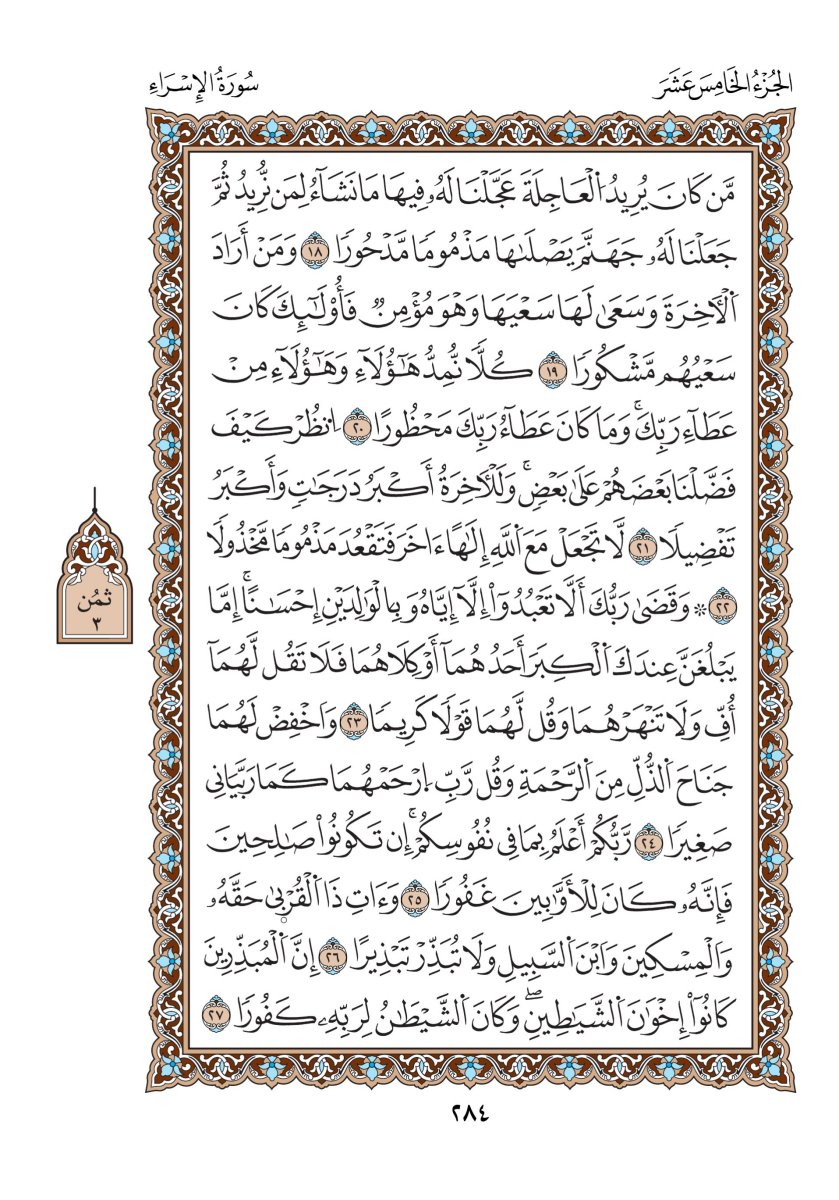 الجُزْءُ الخَامِسَ عَشَرَ
سُورَةُ الإِسْرَاءِ
مَّن كَانَ يُرِيدُ اُ۬لْعَاجِلَةَ عَجَّلْنَا لَهُۥ فِيهَا مَا نَشَآءُ لِمَن نُّرِيدُ ثُمَّ
جَعَلْنَا لَهُۥ جَهَنَّمَ يَصْلَىٰهَا مَذْمُومٗا مَّدْحُورٗا ١٨ وَمَنْ أَرَادَ
اَ۬لْأٓخِرَةَ وَسَعَىٰ لَهَا سَعْيَهَا وَهْوَ مُؤْمِنٞ فَأُوْلَٰٓئِكَ كَانَ
سَعْيُهُم مَّشْكُورٗا ١٩ كُلّٗا نُّمِدُّ هَٰٓؤُلَآءِ وَهَٰٓؤُلَآءِ مِنْ
عَطَآءِ رَبِّكَۚ وَمَا كَانَ عَطَآءُ رَبِّكَ مَحْظُورًا ٢٠ اِ۟نظُرْ كَيْفَ
فَضَّلْنَا بَعْضَهُمْ عَلَىٰ بَعْضٖۚ وَلَلْأٓخِرَةُ أَكْبَرُ دَرَجَٰتٖ وَأَكْبَرُ
تَفْضِيلٗا ٢١ لَّا تَجْعَلْ مَعَ اَ۬للَّهِ إِلَٰهًا ءَاخَرَ فَتَقْعُدَ مَذْمُومٗا مَّخْذُولٗا
٢٢ ۞ وَقَضَىٰ رَبُّكَ أَلَّا تَعْبُدُوٓاْ إِلَّآ إِيَّاهُ وَبِالْوَٰلِدَيْنِ إِحْسَٰنًاۚ إِمَّا
ثمُن
٣
يَبْلُغَنَّ عِندَكَ اَ۬لْكِبَرَ أَحَدُهُمَآ أَوْ كِلَاهُمَا فَلَا تَقُل لَّهُمَآ
أُفِّ وَلَا تَنْهَرْهُمَا وَقُل لَّهُمَا قَوْلٗا كَرِيمٗا ٢٣ وَاَخْفِضْ لَهُمَا
جَنَاحَ اَ۬لذُّلِّ مِنَ اَ۬لرَّحْمَةِ وَقُل رَّبِّ اِ۪رْحَمْهُمَا كَمَا رَبَّيَانِي
صَغِيرٗا ٢٤ رَّبُّكُمْ أَعْلَمُ بِمَا فِي نُفُوسِكُمْۚ إِن تَكُونُواْ صَٰلِحِينَ
فَإِنَّهُۥ كَانَ لِلْأَوَّٰبِينَ غَفُورٗا ٢٥ وَءَاتِ ذَا اَ۬لْقُرْبىٰ حَقَّهُۥ
وَالْمِسْكِينَ وَابْنَ اَ۬لسَّبِيلِ وَلَا تُبَذِّرْ تَبْذِيرًا ٢٦ إِنَّ اَ۬لْمُبَذِّرِينَ
كَانُوٓاْ إِخْوَٰنَ اَ۬لشَّيَٰطِينِۖ وَكَانَ اَ۬لشَّيْطَٰنُ لِرَبِّهِۦ كَفُورٗا ٢٧
٢٨٤